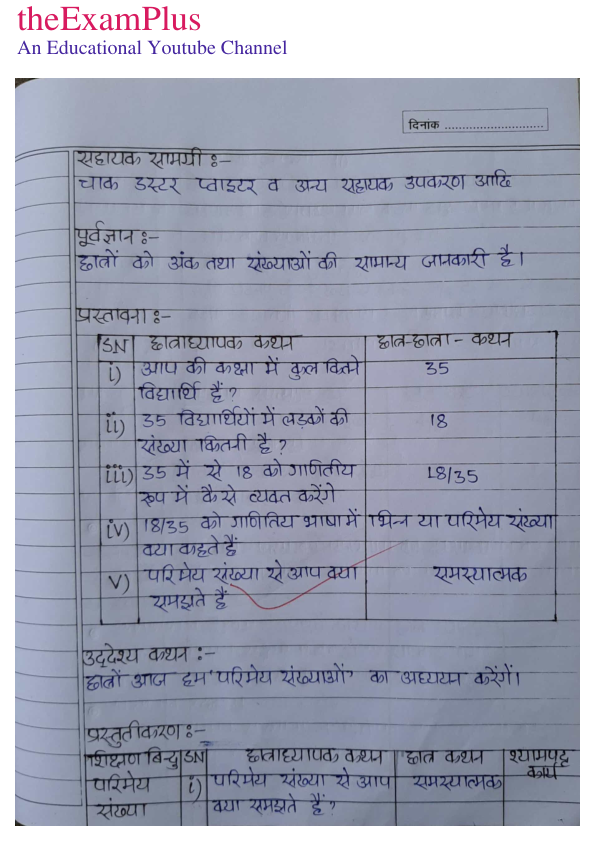 theExamPlus
An Educational Youtube Channel
दिनांक ............................
सहायक सामग्री :-
चाक डस्टर प्वाइटर व अन्य सहायक उपकरण आदि
पूर्वज्ञान :-
छात्रों को अंक तथा संख्याओं की सामान्य जानकारी है।
प्रस्तावना :-
SN छात्राध्यापक कथन छात्र-छात्रा - कथन
i) आप की कक्षा में कुल कितने 35
विद्यार्थि हैं ?
ii) 35 विद्यार्थियों में लड़कों की 18
संख्या कितनी है ?
iii) 35 में से 18 को गाणितीय 18/35
रूप में कैसे व्यक्त करेंगे
iv) 18/35 को गाणितिय भाषा में भिन्न या परिमेय संख्या
क्या कहते हैं
v) परिमेय संख्या से आप क्या समस्यात्मक
समझते हैं
उद्देश्य कथन :-
छात्रों आज हम 'परिमेय संख्याओं' का अध्ययन करेंगें।
प्रस्तुतीकरण :-
शिक्षण बिन्दु SN छात्राध्यापक कथन छात्र कथन श्यामपट्ट
कार्य
परिमेय i) परिमेय संख्या से आप समस्यात्मक
संख्या क्या समझते हैं ?